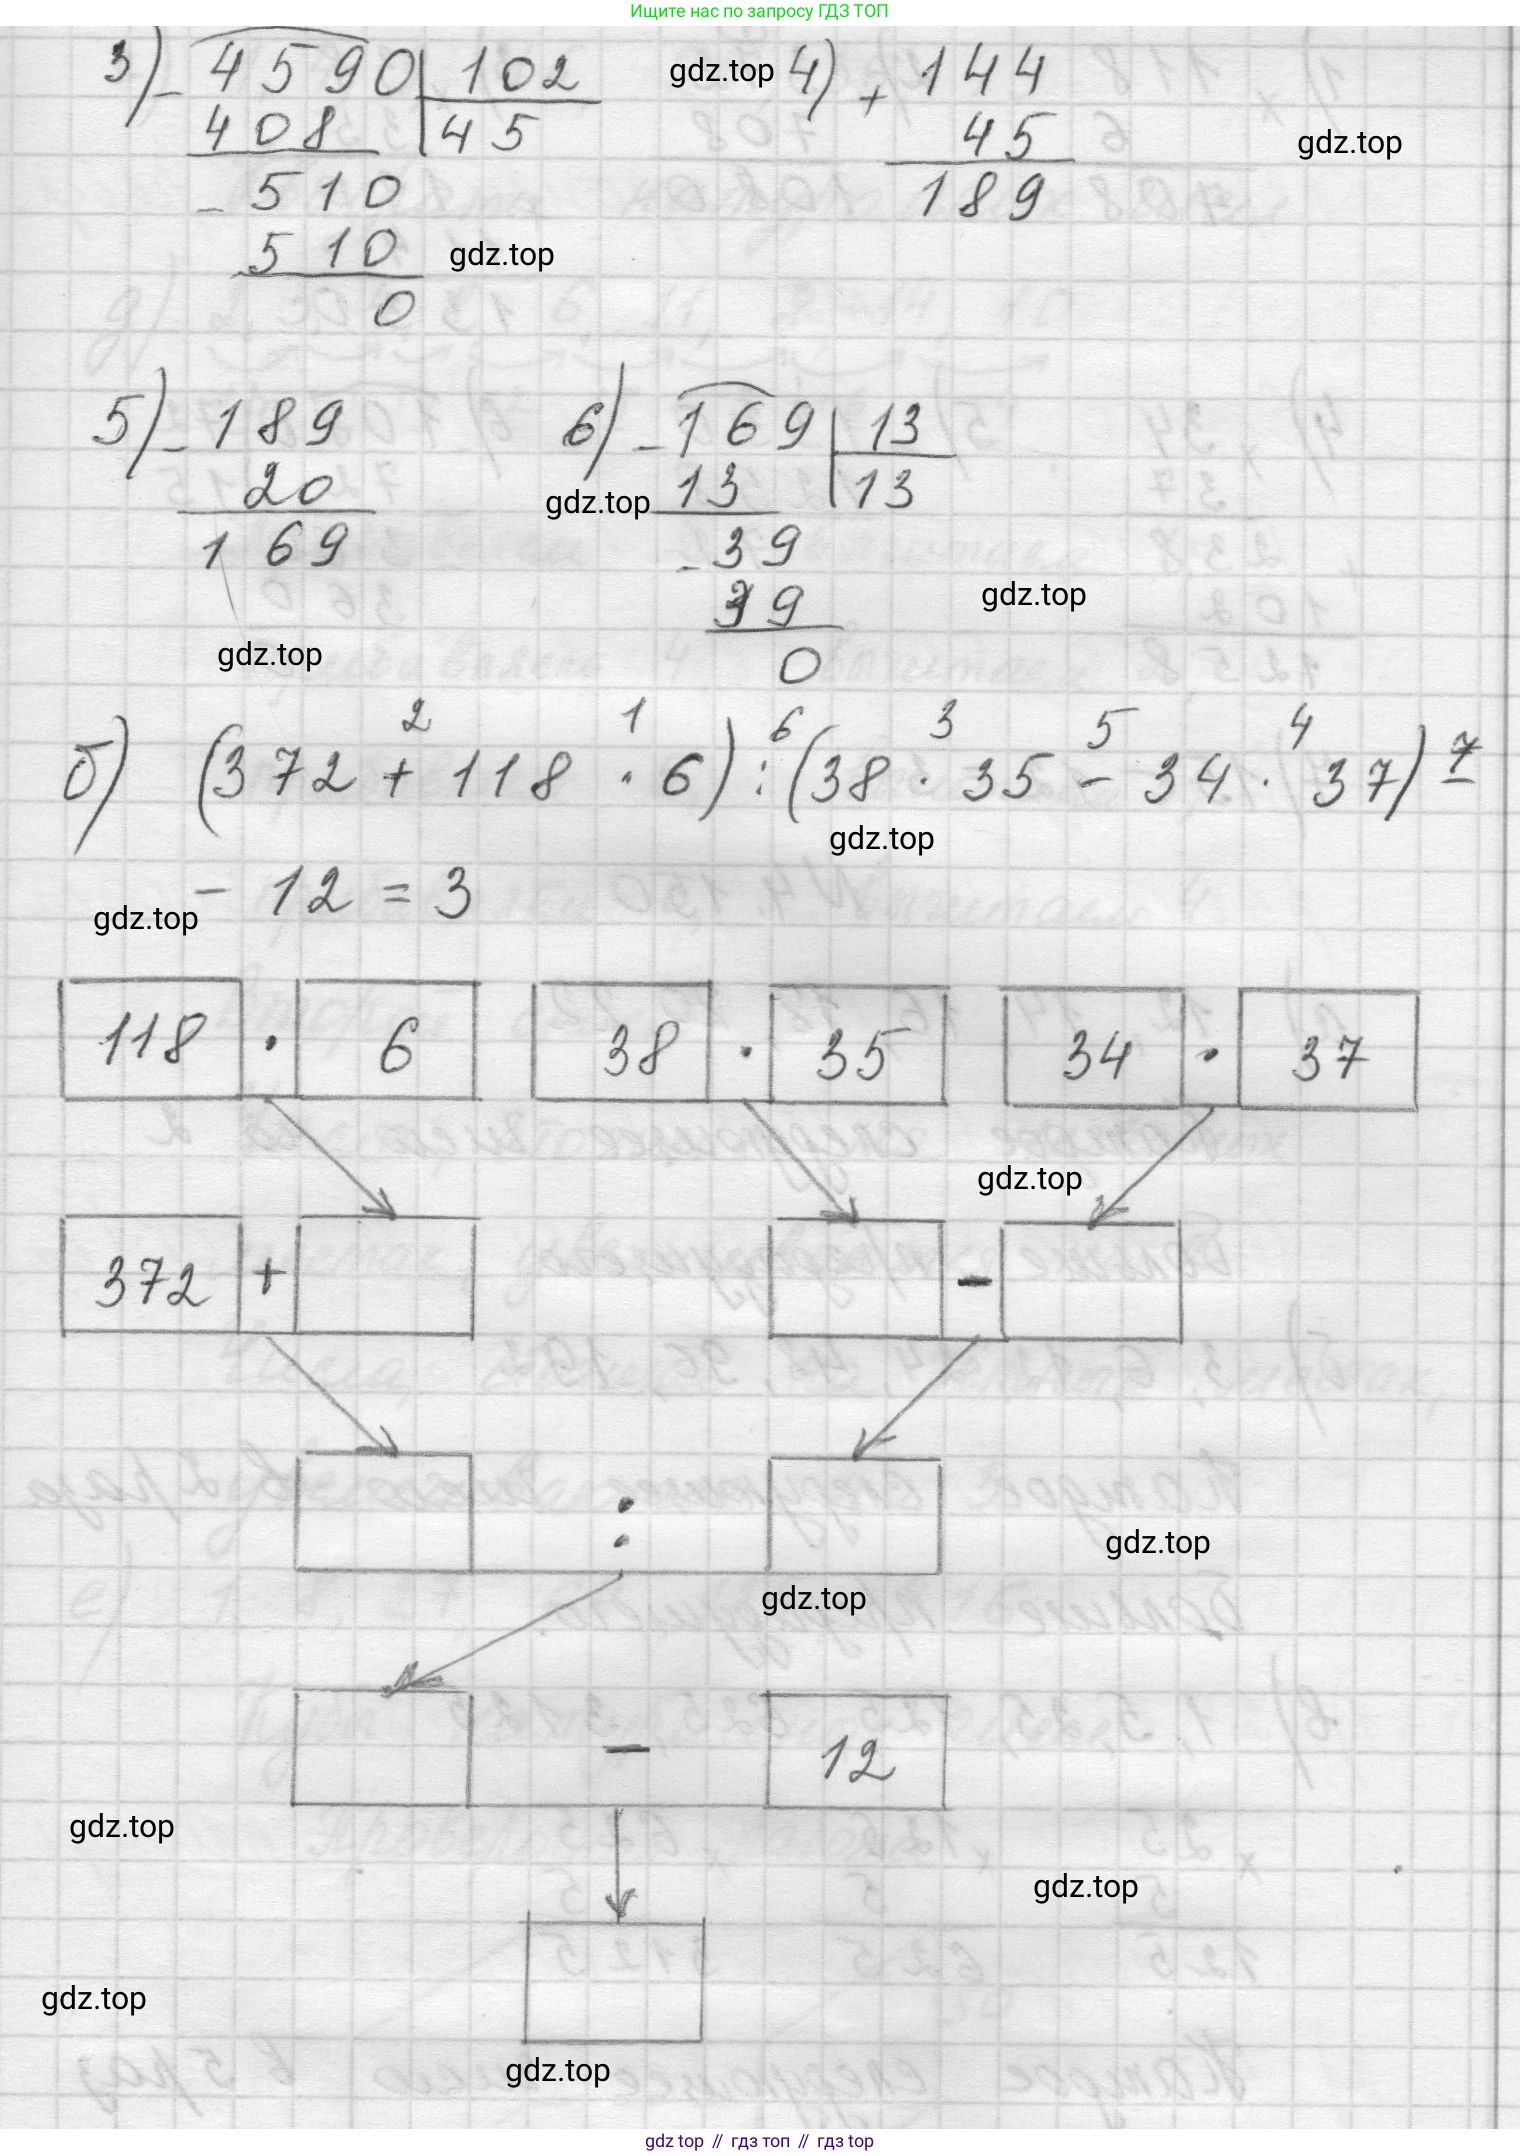 Ищите нас по запросу ГДЗ ТОП
3) - 4590 | 102
408 | 45
- 510
510
0
gdz.top
4) + 144
45
189
gdz.top
gdz.top
5) - 189
20
169
6) - 169 | 13
13 | 13
- 39
39
0
gdz.top
gdz.top
gdz.top
2 1 6 3 5 4 7
б) (372 + 118 · 6) : (38 · 35 - 34 · 37) -
gdz.top
- 12 = 3
gdz.top
118 · 6 38 · 35 34 · 37
gdz.top
372 + -
:
gdz.top
gdz.top
- 12
gdz.top
gdz.top
gdz.top
gdz.top
gdz top // гдз топ // гдз top